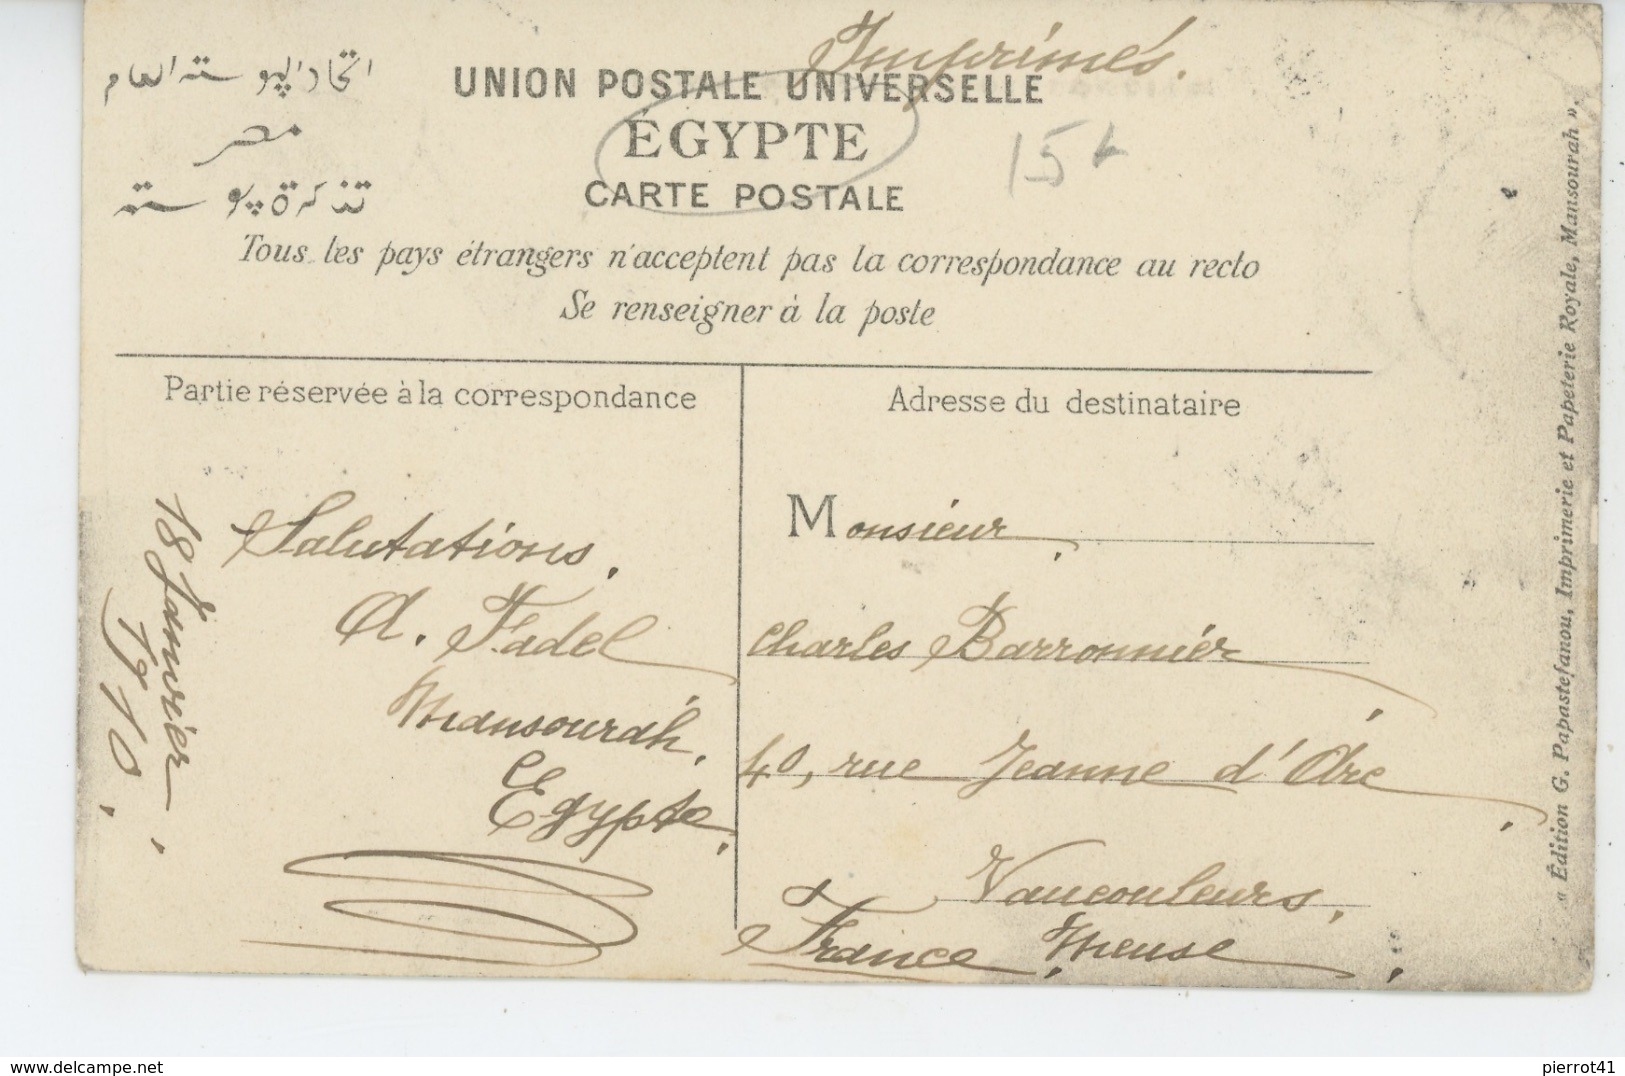 Imprimés.
اتحاد البوسته العام
مصر
تذكرة بوسته
UNION POSTALE UNIVERSELLE
ÉGYPTE
CARTE POSTALE
15
Tous les pays étrangers n'acceptent pas la correspondance au recto
Se renseigner à la poste
Partie réservée à la correspondance
18 Janvier
1910.
Salutations.
A. Fadel
Mansourah.
Egypte.
Adresse du destinataire
Monsieur
Charles Barronnier
40, rue Jeanne d'Arc
Vaucouleurs.
France Meuse
« Édition G. Papastefanou, Imprimerie et Papeterie Royale, Mansourah ».
pierrot41